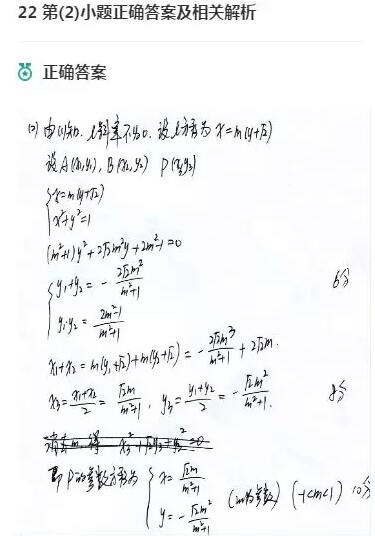 22 第(2)小题正确答案及相关解析
正确答案
(2) 由(1)知. l斜率不为0. 设l方程为 x=m(y+√2)
设A(x₁,y₁), B(x₂,y₂) P(x₃,y₃)
{x=m(y+√2)
x²+y²=1
(m²+1)y²+2√2m²y+2m²-1=0
{y₁+y₂ = - 2√2m²/(m²+1) 6分
y₁y₂ = (2m²-1)/(m²+1)
x₁+x₂ = m(y₁+√2)+m(y₂+√2) = - 2√2m³/(m²+1) + 2√2m.
x₃ = (x₁+x₂)/2 = √2m/(m²+1), y₃ = (y₁+y₂)/2 = - √2m²/(m²+1). 8分
即P的参数方程为 {x = √2m/(m²+1)
y = - √2m²/(m²+1) (m为参数) (-1<m<1) 10分